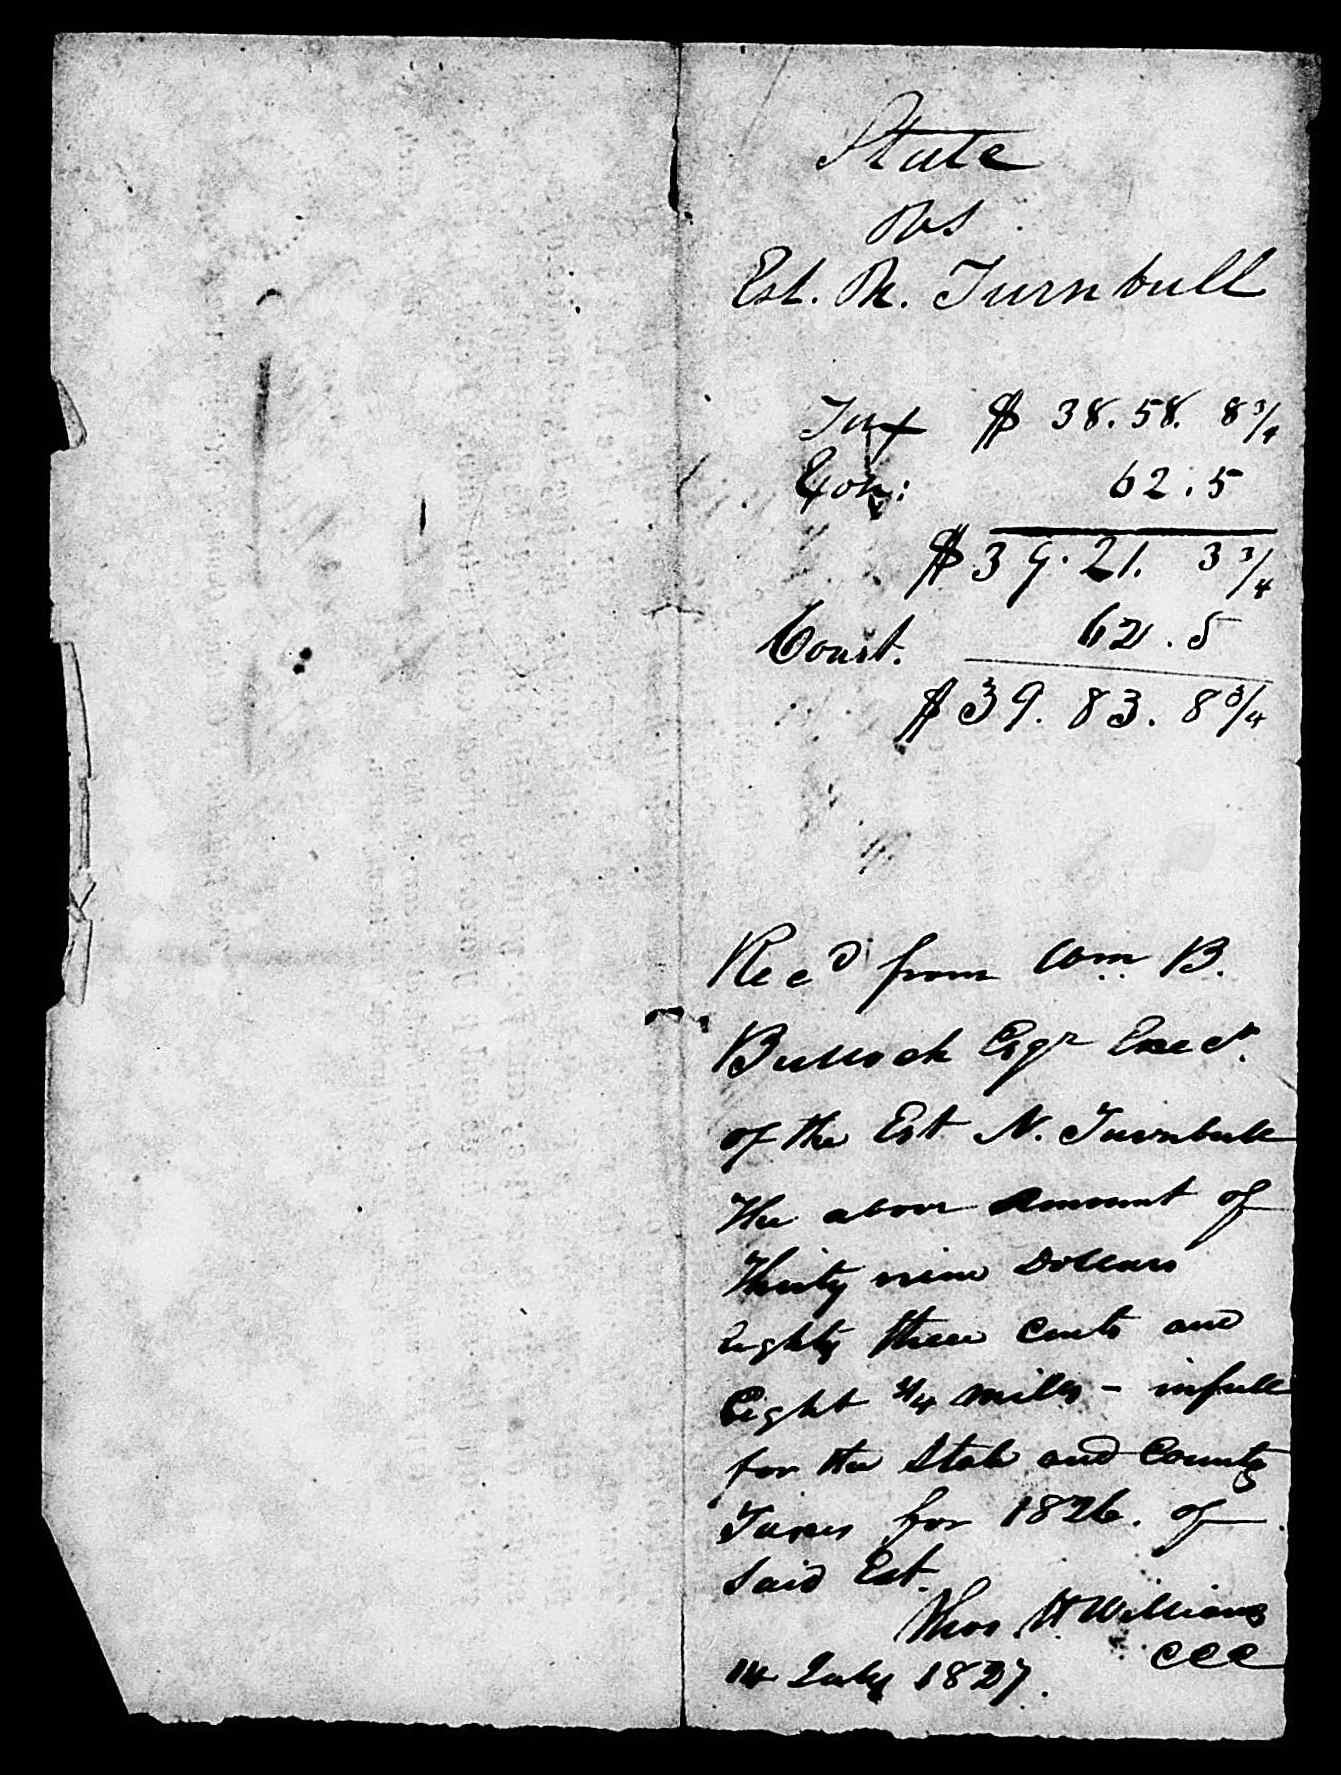 State
vs
Est. N. Turnbull
Tax $ 38.58. 8 3/4
Con: 62.5
$ 39.21. 3 3/4
Const. 62.5
$ 39.83. 8 3/4
Recd from Wm B.
Bullock Esqr Exect.
of the Est N. Turnbull
the above amount of
Thirty nine Dollars
Eighty three Cents and
Eight 3/4 mills - in full
for the State and County
Taxes for 1826. of
said Est.
Thos H Williams
CCC
14 July 1827.